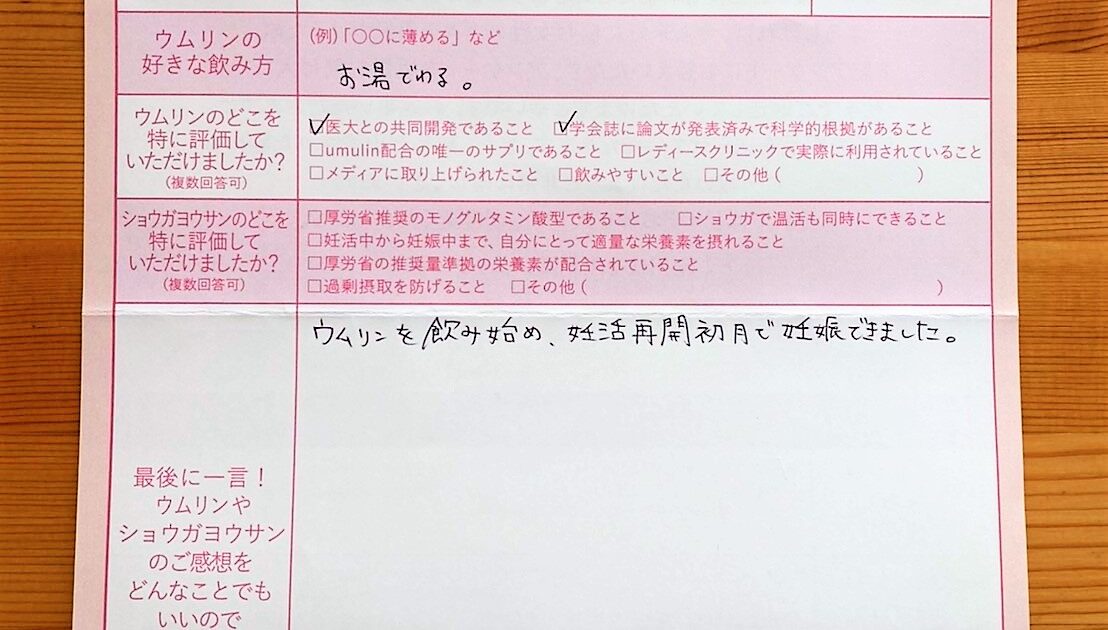 ウムリンの
好きな飲み方
(例)「〇〇に薄める」など
お湯でわる。
ウムリンのどこを
特に評価して
いただけましたか?
(複数回答可)
☑医大との共同開発であること ☑学会誌に論文が発表済みで科学的根拠があること
□umulin配合の唯一のサプリであること □レディースクリニックで実際に利用されていること
□メディアに取り上げられたこと □飲みやすいこと □その他( )
ショウガヨウサンのどこを
特に評価して
いただけましたか?
(複数回答可)
□厚労省推奨のモノグルタミン酸型であること □ショウガで温活も同時にできること
□妊活中から妊娠中まで、自分にとって適量な栄養素を摂れること
□厚労省の推奨量準拠の栄養素が配合されていること
□過剰摂取を防げること □その他( )
ウムリンを飲み始め、妊活再開初月で妊娠できました。
最後に一言!
ウムリンや
ショウガヨウサン
のご感想を
どんなことでも
いいので